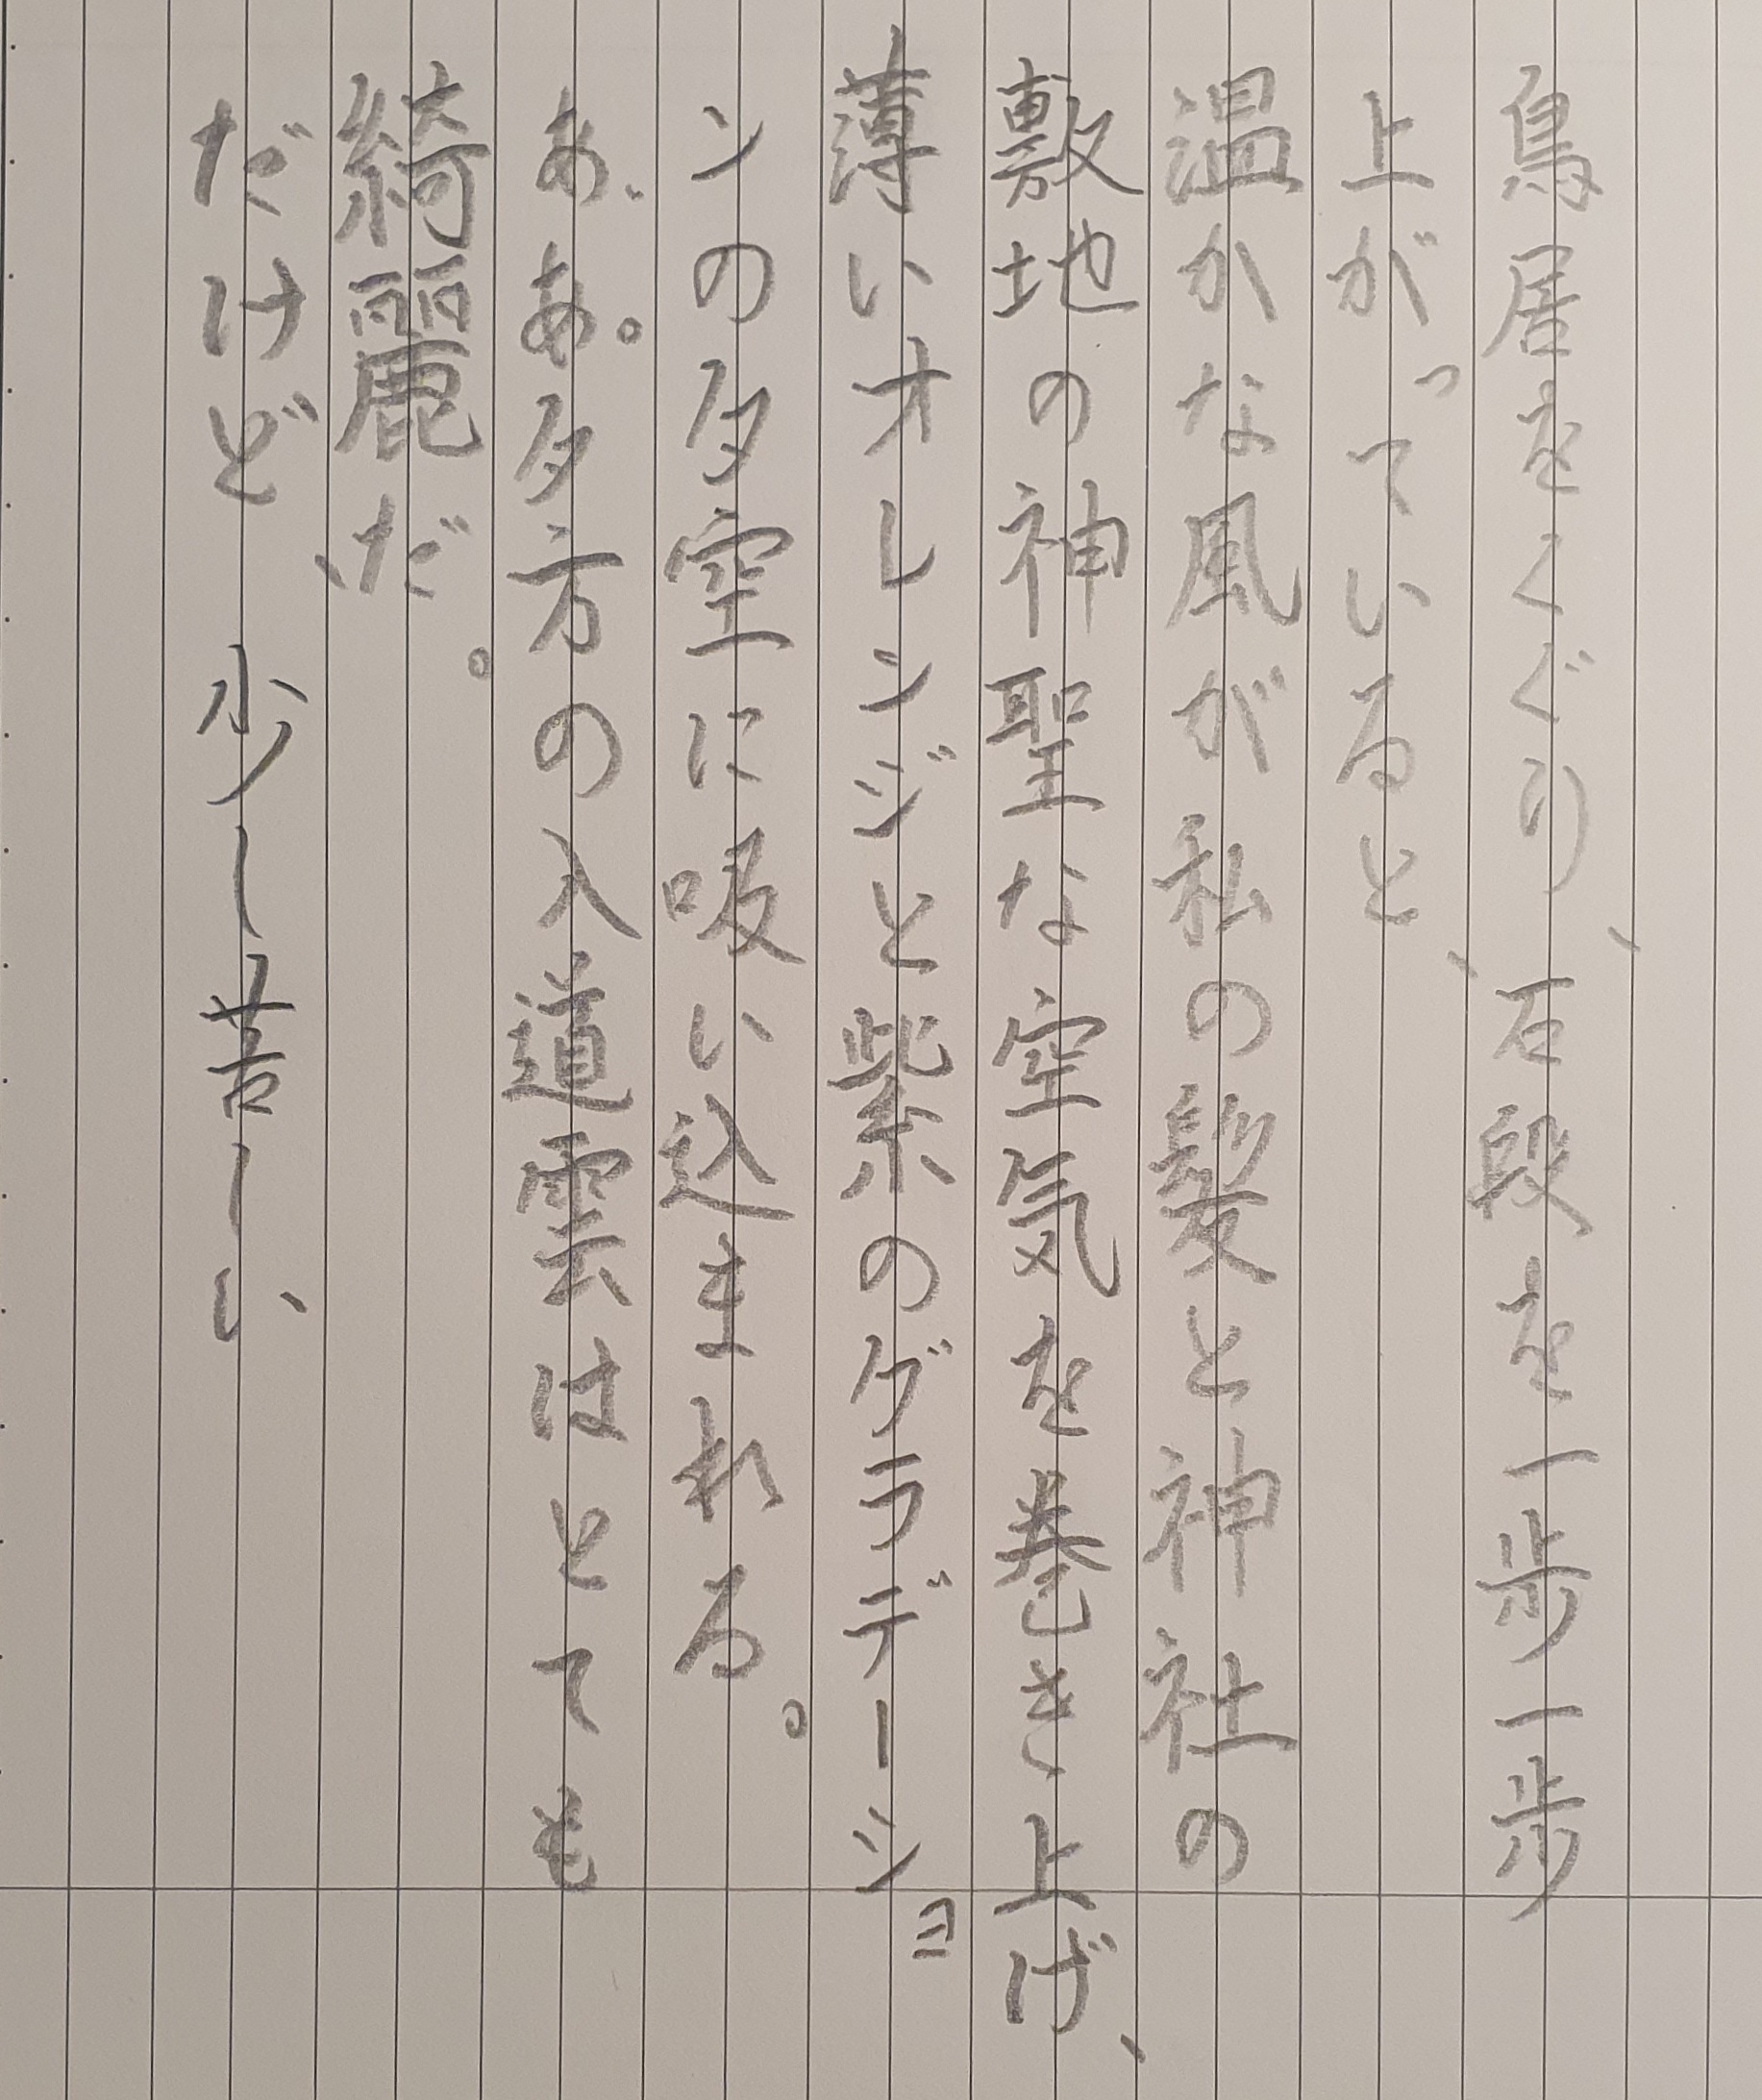 鳥居をくぐり、石段を一歩一歩
上がっていると、
温かな風が私の髪と神社の
敷地の神聖な空気を巻き上げ、
薄いオレンジと紫のグラデーショ
ンの夕空に吸い込まれる。
あ、あ。夕方の入道雲はとても
綺麗だ。
だけど少し苦しい